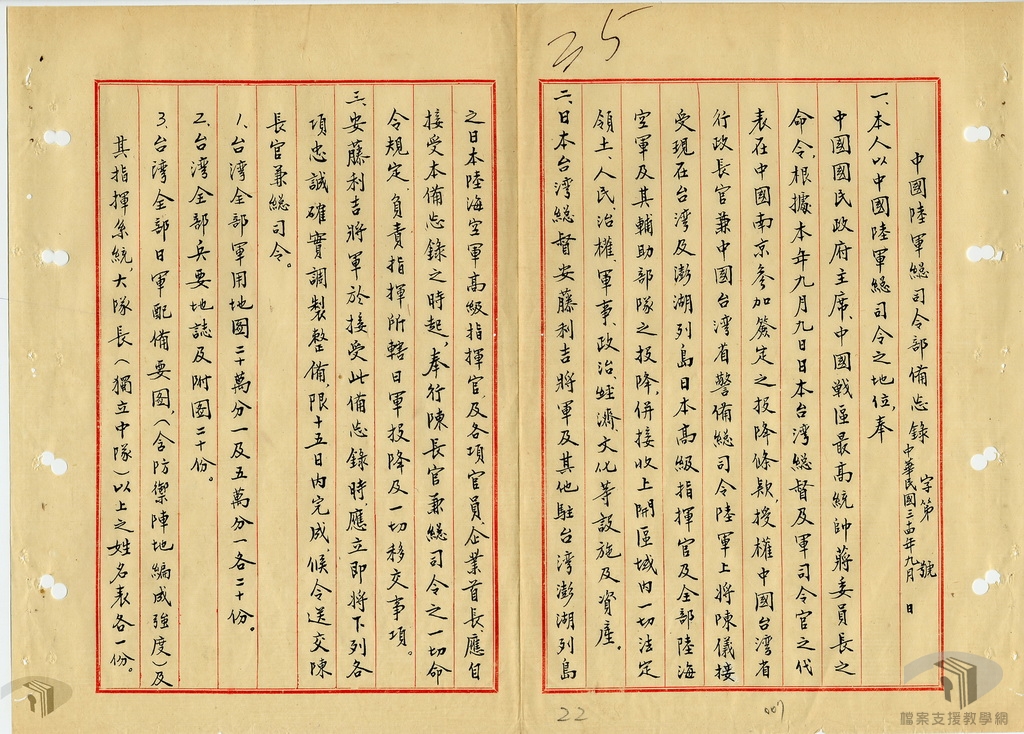 25
中國陸軍總司令部備忘錄
字第 號
中華民國三十四年九月 日
一、本人以中國陸軍總司令之地位,奉
中國國民政府主席、中國戰區最高統帥蔣委員長之
命令,根據本年九月九日日本台灣總督及軍司令官之代
表在中國南京參加簽定之投降條款,授權中國台灣省
行政長官兼中國台灣省警備總司令陸軍上將陳儀接
受現在台灣及澎湖列島日本高級指揮官及全部陸海
空軍及其輔助部隊之投降,併接收上開區域內一切法定
領土、人民、治權、軍事、政治、經濟、文化等設施及資產。
二、日本台灣總督安藤利吉將軍及其他駐台灣澎湖列島
之日本陸海空軍高級指揮官及各項官員、企業首長、應自
接受本備忘錄之時起,奉行陳長官兼總司令之一切命
令規定、負責指揮所轄日軍投降及一切移交事項。
三、安藤利吉將軍於接受此備忘錄時,應立即將下列各
項忠誠確實調製整備,限十五日內完成,候令送交陳
長官兼總司令。
1、台灣全部軍用地图二十萬分一及五萬分一各二十份。
2、台灣全部兵要地誌及附图二十份。
3、台灣全部日軍配備要图,(含防禦陣地編成強度)及
其指揮系統,大隊長(獨立中隊)以上之姓名表各一份。
22
007
檔案支援教學網